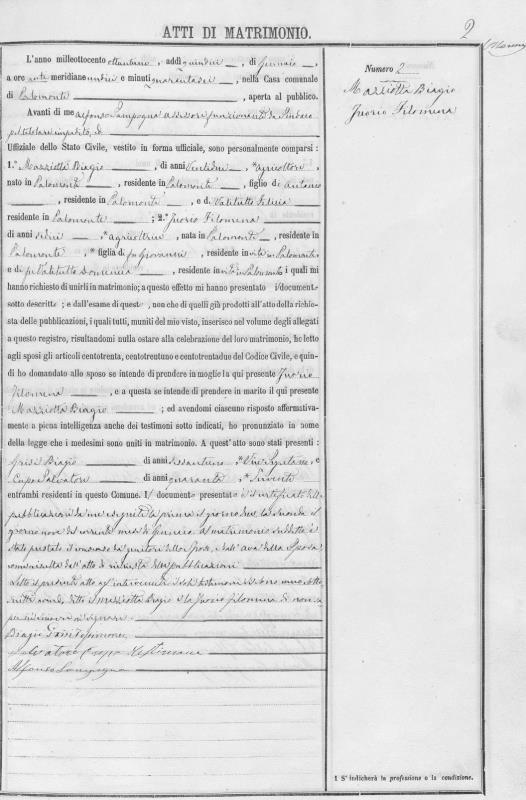 ATTI DI MATRIMONIO.
2
L'anno milleottocento ottantuno, addì quindici, di Gennaio,
a ore anti meridiane undici e minuti quarantasei, nella Casa comunale
di Palomonte, aperta al pubblico.
Avanti di me Alfonso Lampogna assessore funzionante da Sindaco
pel titolare impedito,
Uffiziale dello Stato Civile, vestito in forma ufficiale, sono personalmente comparsi :
1.° Mazziotta Biagio, di anni ventidue, *agricoltore,
nato in Palomonte, residente in Palomonte, figlio di Antonio
, residente in Palomonte, e di Valitutto Felicia
residente in Palomonte; 2.° Iuorio Filomena
di anni sedici, *agricoltrice, nata in Palomonte, residente in
Palomonte, * figlia di fu Giovanni, residente in vita in Palomonte
e di fu Valitutto Domenica, residente in vita in Palomonte i quali mi
hanno richiesto di unirli in matrimonio; a questo effetto mi hanno presentato i document
sotto descritt ; e dall'esame di quest , non che di quelli già prodotti all'atto della richie-
sta delle pubblicazioni, i quali tutti, muniti del mio visto, inserisco nel volume degli allegati
a questo registro, risultandomi nulla ostare alla celebrazione del loro matrimonio, ho letto
agli sposi gli articoli centotrenta, centotrentuno e centotrentadue del Codice Civile, e quin-
di ho domandato allo sposo se intende di prendere in moglie la qui presente Iuorio
Filomena, e a questa se intende di prendere in marito il qui presente
Mazziotta Biagio; ed avendomi ciascuno risposto affermativa-
mente a piena intelligenza anche dei testimoni sotto indicati, ho pronunziato in nome
della legge che i medesimi sono uniti in matrimonio. A quest'atto sono stati presenti :
Grisi Biagio di anni sessantuno, e
Cupo Salvatore di anni quaranta
entrambi residenti in questo Comune. I document presentat è il certificato delle
pubblicazioni da me eseguite la prima il giorno due, la seconda il
giorno nove del corrente mese di Gennaio al matrimonio suddetto è
stato prestato il consenso dai genitori dello Sposo, e dall'ava della Sposa
come risulta dall'atto di richiesta delle pubblicazioni
Letto il presente atto agl'intervenuti i soli testimoni si sono meco sotto-
scritti avendo detto il Mazziotta Biagio e la Iuorio Filomena di non sa-
per
Biagio Grisi testimone
Salvatore Cupo testimone
Alfonso Lampogna
Numero 2
Mazziotta Biagio
Iuorio Filomena
1 S'indicherà la professione o la condizione.